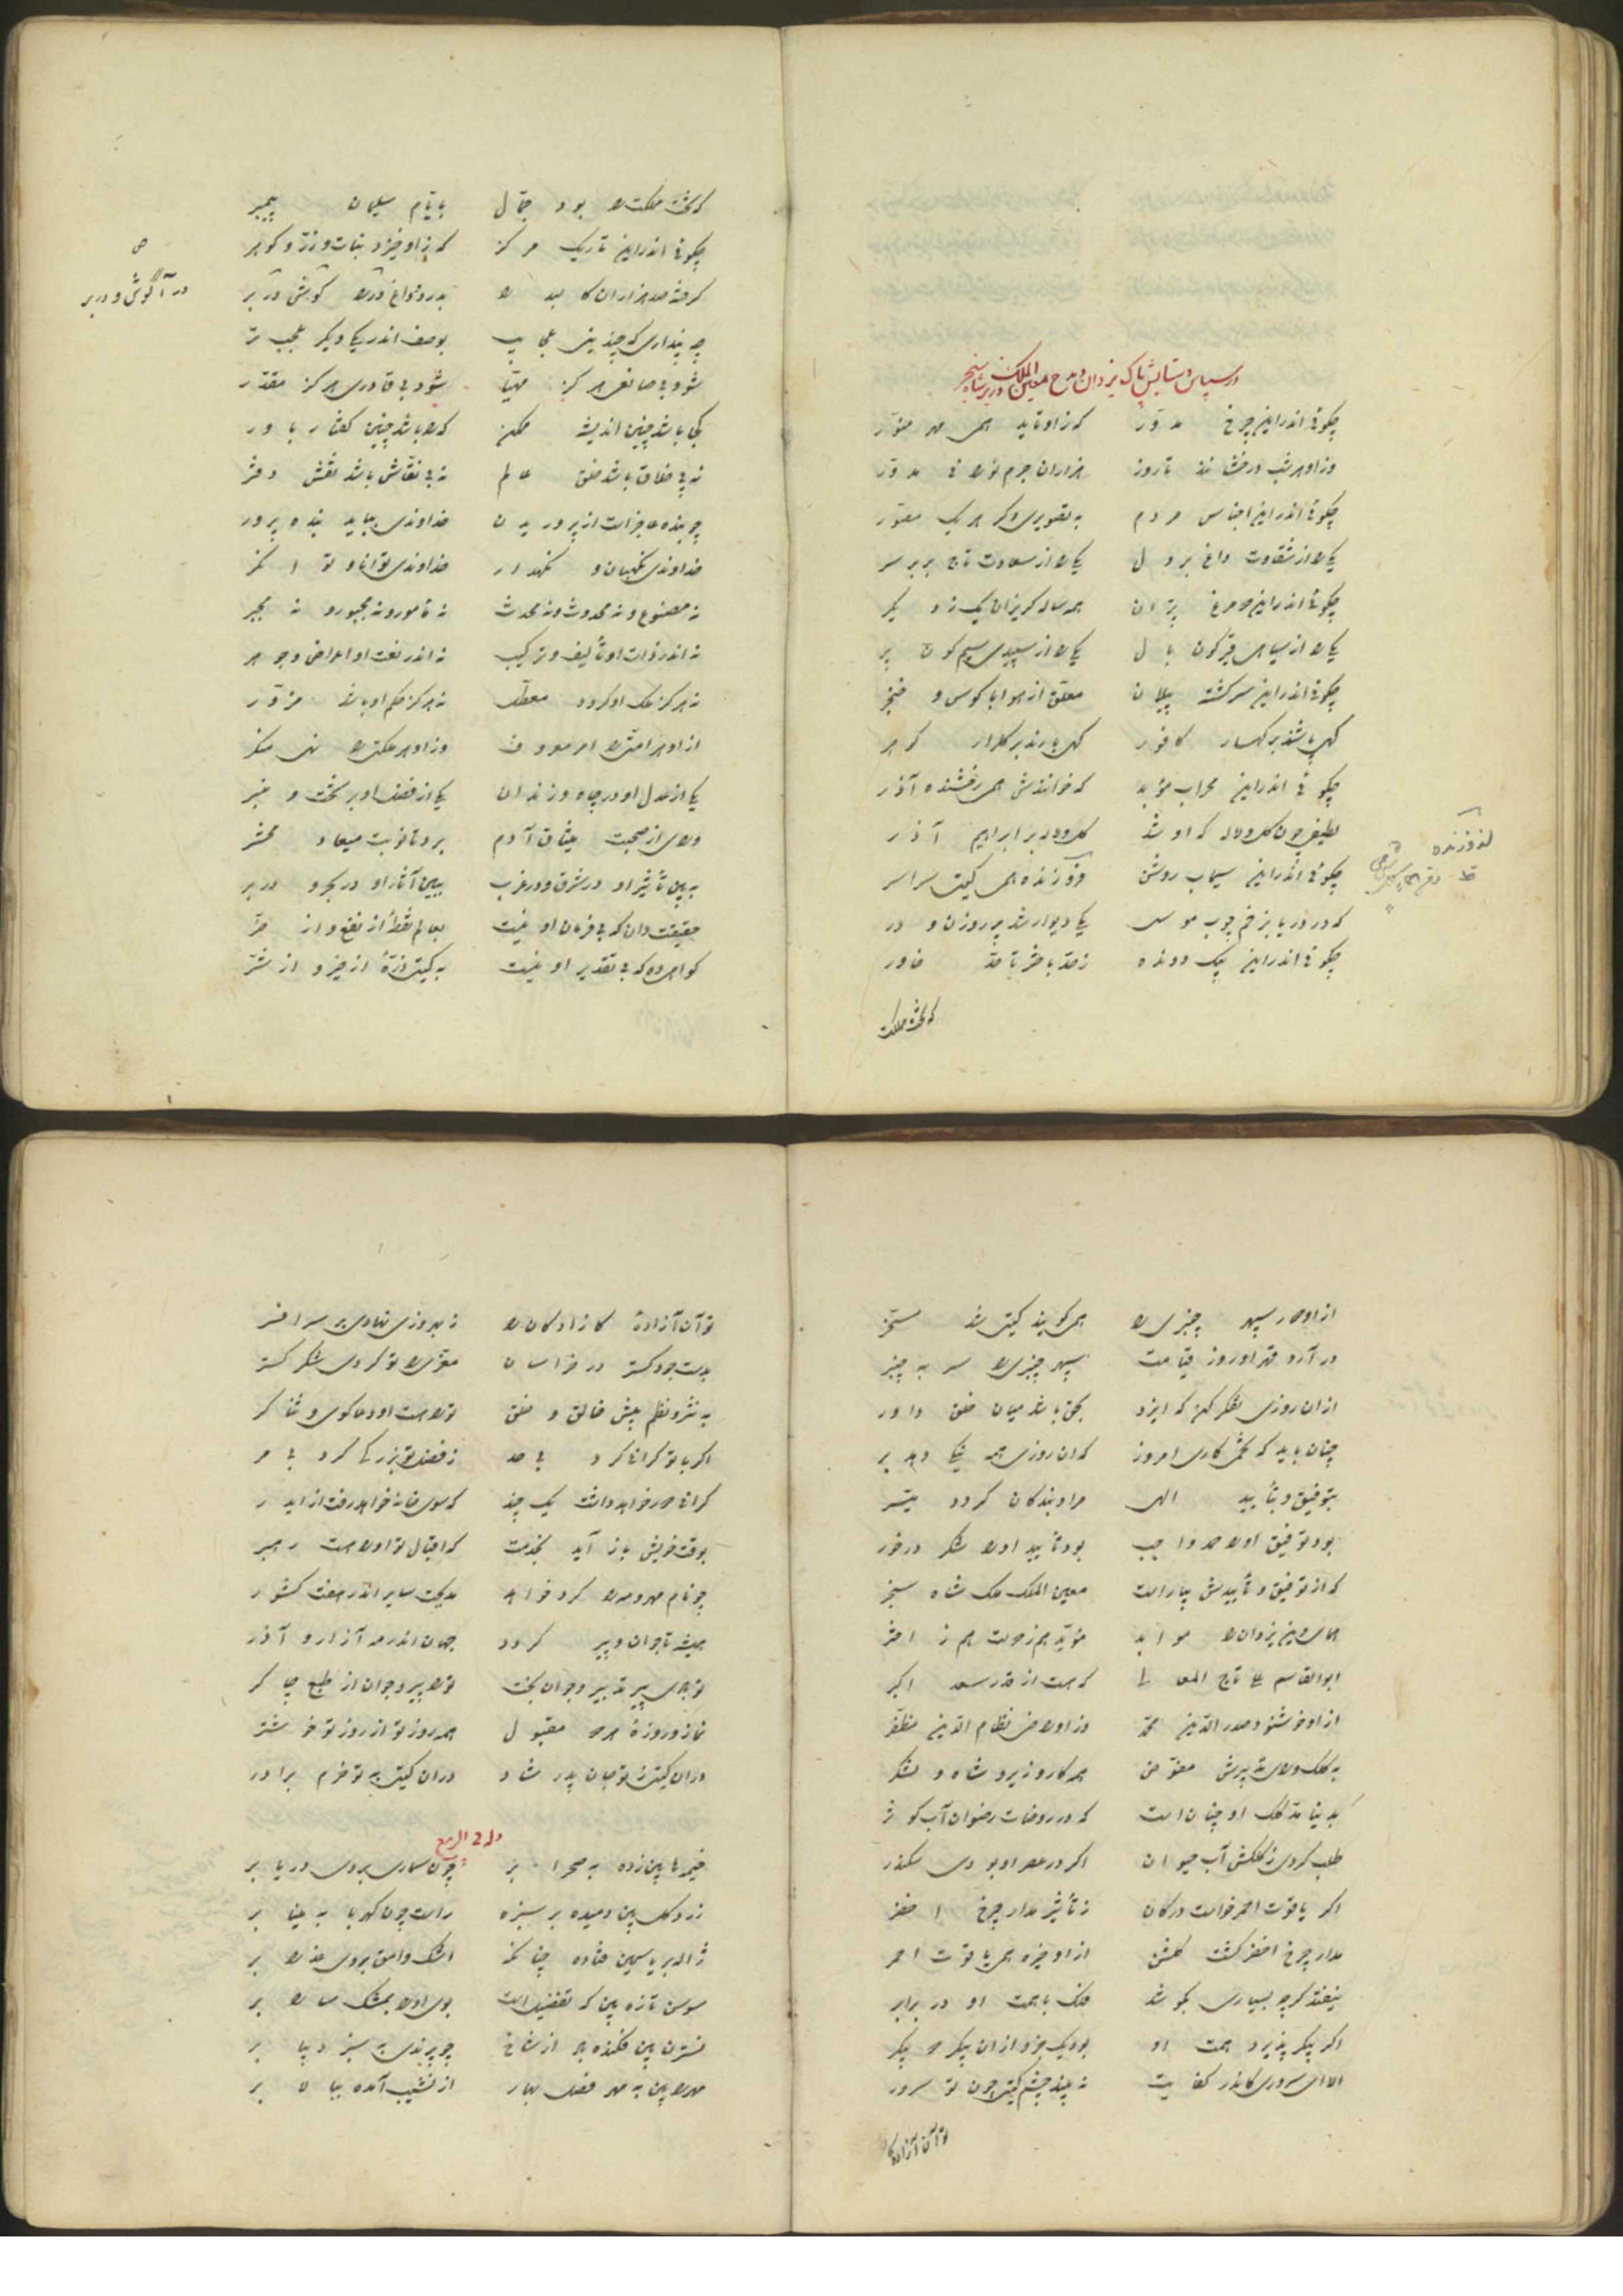 در سپاس و ستایش پاک یزدان و مدح معین الملک وزیر شاه سنجر
چگوئی اندرین چرخ مدوّر که زاو تابد همی مهر منوّر
وزاو هر شب درخشانند تا روز هزاران جرم نورانی مدوّر
چگوئی اندرین اجناس مردم به تصویری دگر هر یک مصوّر
یکی را از شقاوت داغ بر دل یکی را از سعادت تاج بر سر
چگوئی اندرین دو مرغ پرّان همه ساله گریزان یک ز دیگر
یکی را از سیاهی قیرگون بال یکی را از سپیدی سیم گون پر
چگوئی اندرین سرگشته پیلان معلّق از هوا با کوس و خنجر
گهی پاشند بر کهسار کافور گهی بارند بر گلزار گوهر
چگوئی اندرین محراب مؤبد که خوانندش همی رخشنده آذر
لطیفی چون گل و لاله که او شد گل و لاله بر ابراهیم آذر
چگوئی اندرین سیماب روشن فروزنده همی گیتی سراسر
که در دریا بزخم چوب موسی یکی دیوار شد پر روزن و در
چگوئی اندرین پیک دونده ز حدّ باختر تا حدّ خاور
که تخت مملکت
که تخت مملکت را بود حمّال بایّام سلیمان پیمبر
چگوئی اندرین تاریک مرکز که زاو خیزد نبات و زرّ و گوهر
گرفته صد هزاران کالبد را بدرد و داغ در آگوش در بر
در آگوش و در بر
چه پنداری که چندینی عجایب بوصف اندر یکی دیگر عجب تر
شود بی صانعی هرگز مهیّا شود بی قادری هرگز مقدّر
کجا باشد چنین اندیشه ممکن که را باشد چنین گفتار باور
نه بی خلاق باشد خلق عالم نه بی نقّاش باشد نقش دفتر
چو بنده عاجز است از پروریدن خداوندی بباید بنده پرور
خداوندی نگهبان و نگهدار خداوندی توانا و توانگر
نه مصنوع و نه محدوث و نه محدث نه مأمور و نه مجبور و نه مجبر
نه اندر ذات او تألیف و ترکیب نه اندر نعت او اعراض و جوهر
نه هرگز ملک او گردد معطّل نه هرگز حکم او باشد مزوّر
از او هر امّتی را امر معروف وزاو هر ملّتی را نهی منکر
یکی از عدل او در چاه و زندان یکی از فضل او بر تخت و منبر
ولای از صحبت میثاق آدم برد تا نوبت میعاد محشر
به بین تأثیر او در شرق و در غرب ببین آثار او در بحر و در بر
حقیقت دان که بی فرمان او نیست بعالم نقطهٔ از نفع و از ضرّ
گواهی ده که بی تقدیر او نیست به گیتی ذرّهٔ از خیر و از شرّ
همی گویند گیتی شد مسخّر
در آرد قهر او روز قیامت سپهر چنبری را سر به چنبر
از آن روزی تفکر کن که ایزد بحق باشد میان خلق داور
چنان باید که تخمی کاری امروز که آن روزی همه نیکی دهد بر
بتوفیق و بتأیید الهی مراد بندگان گردد میسّر
بود توفیق او را حمد واجب بود تأیید او را شکر درخور
که از توفیق و تأییدش بیاراست معین الملک ملک شاه سنجر
مؤیّد هم ز دولت هم ز اختر
ابوالقاسم علی تاج المعالی که هست از قدر سعد اکبر
از او خوشنود صدر الدّین محمّد وز او راضی نظام الدّین مظفّر
به کلک و رای و تدبیرش مفوّض همه کار وزیر و شاه و لشکر
بدینا مدّ کلک او چنان است که در روضات رضوان آب کوثر
طلب کردی ز کلکش آب حیوان اگر در عصر او بودی سکندر
اگر یاقوت احمر خواست در کان ز تأثیر مدار چرخ اخضر
مدار چرخ اخضر گشت کلکش از او خیزد همی یاقوت احمر
نیفتد گرچه بسیاری بکوشد فلک با همت او در برابر
اگر پیکر پذیرد همت او بود یک جزو از آن پیکر دو پیکر
الا ای سروری کاندر کفایت نه بیند چشم گیتی چون تو سرور
تو آن آزاده
تو آن آزادهٔ کازادگان را ز بهروزی نهادی بر سر افسر
بدست جود گستر در خراسان معزّی را تو کردی شکر گستر
به نثر و نظم پیش خالق و خلق تو را هست او دعا گوی و ثناگر
اگر با تو گرانی کرد بی حد ز فضل تو بزرگی کرد بی مر
گرانی دور خواهد داشت یک چند که سوی خانه خواهد رفت از ایدر
بوقت خویش باز آید بخدمت که اقبال تو او را هست رهبر
چو نام مهر و مه را کرد خواهد مدیحت سایر اندر هفت کشور
همیشه تا جوان و پیر گردد جهان اندر مه آزار و آذر
تو بادی پیر تدبیر و جوان بخت تو را پیر و جوان از طبع چاکر
نماز و روزهٔ هر دو مقبول همه روز تو از روز تو خوشتر
در آن گیتی ز تو جان پدر شاد در آن گیتی به تو خرم برادر
خیمه ها بین زده به صحرا بر چون سماری بروی دریا بر
زرد گل بین دمیده بر سبزه راست چون کهربا به مینا بر
ژاله بر یاسمین فتاده چنانکه اشک وامق بروی عذرا بر
سوسن تازه بین که تفضیل است بوی او را بمشک سارا بر
نسترن بین فکنده سر از شاخ چو پرندی به سبز دیبا بر
مهر را بین به مهر فصل بهار از نشیب آمده ببالا بر